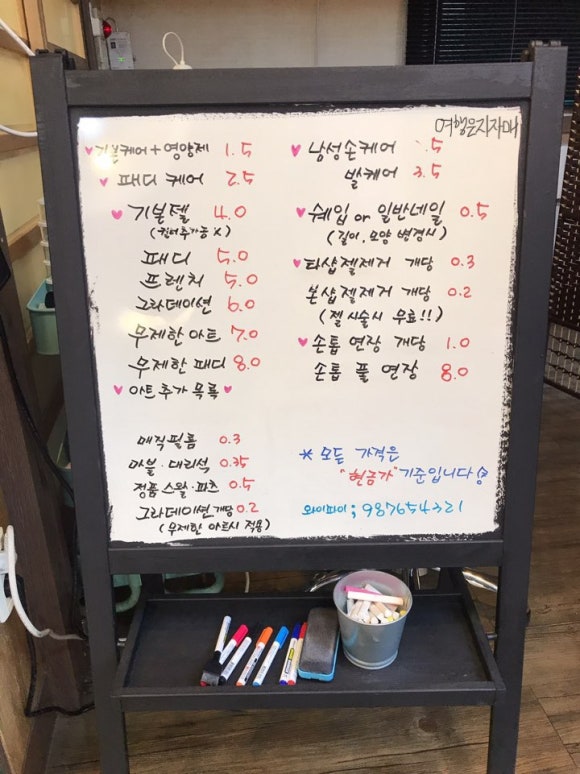 여행은지자매
♥ 기본케어 + 영양제 1.5
♥ 패디 케어 2.5
♥ 기본젤 4.0
(컬러추가금 X)
패디 5.0
프렌치 5.0
그라데이션 6.0
무제한 아트 7.0
무제한 패디 8.0
♥ 아트 추가 목록 ♥
매직필름 0.3
마블·대리석 0.35
정품스왈·파츠 0.5
그라데이션 개당 0.2
(무제한 아트시 적용)
♥ 남성손케어 .5
발케어 3.5
♥ 쉐입 or 일반네일 0.5
(길이, 모양 변경시)
♥ 타샵젤제거 개당 0.3
본샵젤제거 개당 0.2
(젤 시술시 무료!!)
♥ 손톱 연장 개당 1.0
손톱 풀 연장 8.0
* 모든 가격은
"현금가" 기준입니다
와이파이 ; 987654321